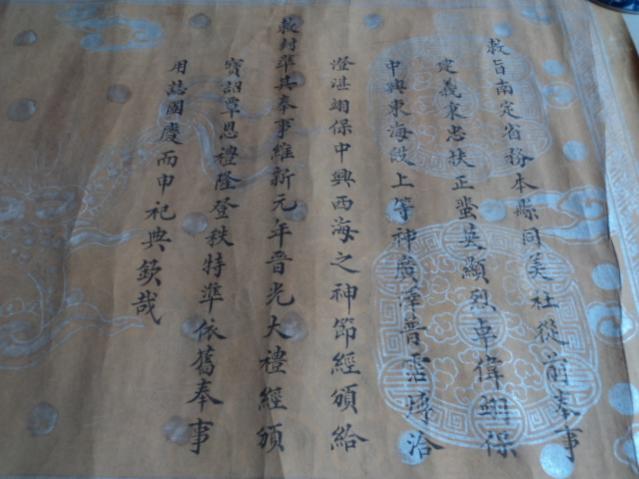 敕旨南定省務本縣同美社從前奉事
定義秉忠扶正蜚英顯烈卓偉翊保
中興東海段上等神廣澤普霑溥洽
澄湛翊保中興西海之神節經頒給
敕封準其奉事維新元年晋光大禮經頒
寶詔覃恩禮隆登秩特準依舊奉事
用誌國慶而申祀典欽哉